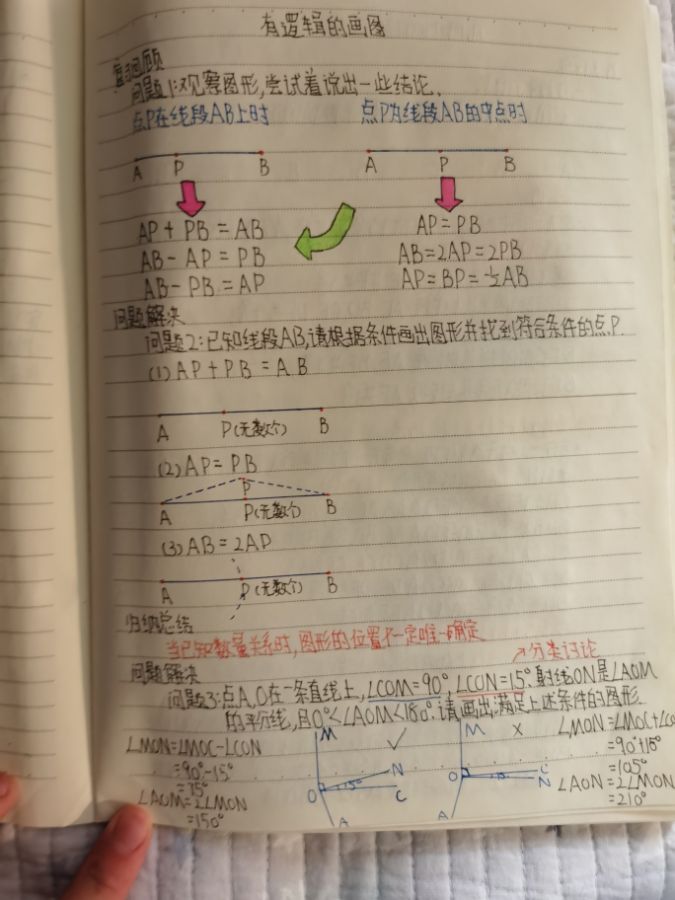 有逻辑的画图
复习回顾
问题1:观察图形,尝试着说出一些结论.
点P在线段AB上时 点P为线段AB的中点时
A P B A P B
AP+PB=AB AP=PB
AB-AP=PB AB=2AP=2PB
AB-PB=AP AP=BP=½AB
问题解决
问题2:已知线段AB,请根据条件画出图形并找到符合条件的点P.
(1)AP+PB=AB
A P(无数个) B
(2)AP=PB
P
A P(无数个) B
(3)AB=2AP
A P(无数个) B
归纳总结
当已知数量关系时,图形的位置不一定唯一确定
↗分类讨论
问题解决
问题3:点A,O在一条直线上,∠COM=90°,∠CON=15°.射线ON是∠AOM
的平分线,且0°<∠AOM<180°.请画出满足上述条件的图形.
∠MON=∠MOC-∠CON
=90°-15°
=75°
∠AOM=2∠MON
=150°
M ✓
N
O 15° C
A
M ×
O 15° C
N
A
∠MON=∠MOC+∠CO
=90°+15°
=105°
∠AON=2∠MON
=210°